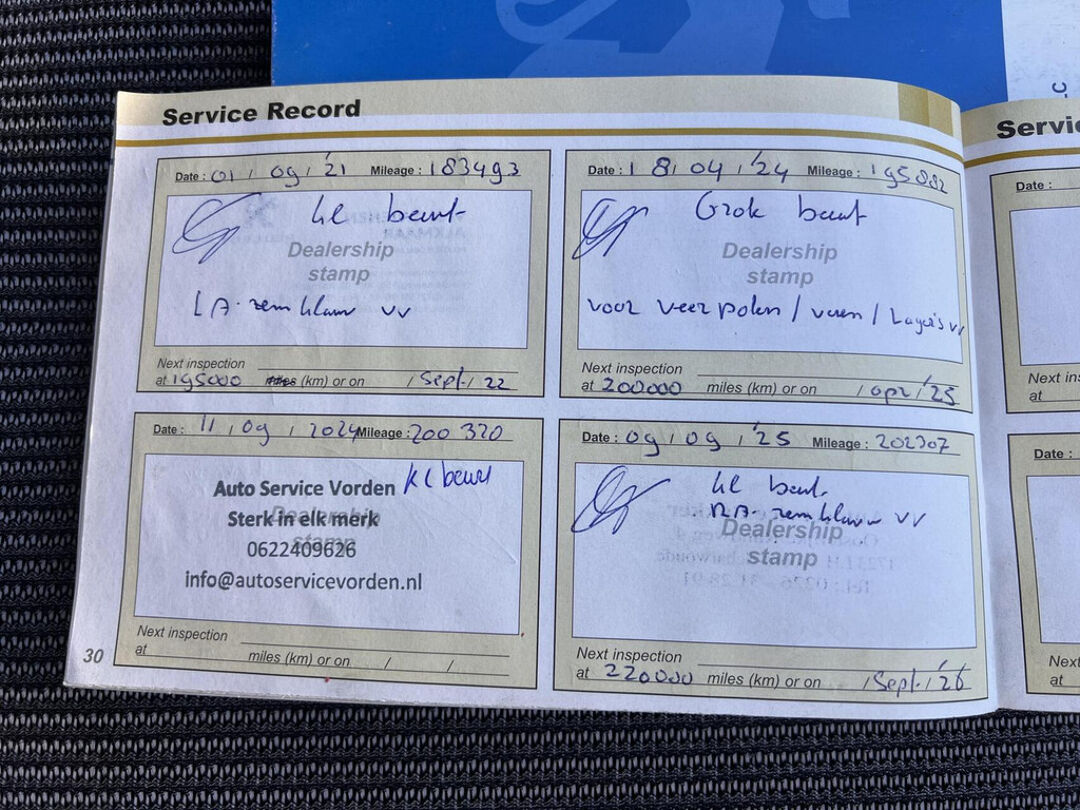 Service Record
Date : 01 / 09 / '21 Mileage : 183493
kl beurt
Dealership
stamp
LA. remklauw vv
Next inspection
at 195000 miles (km) or on / Sept. / 22
Date : 18 / 04 / '24 Mileage : 195882
Grote beurt
Dealership
stamp
voor veerpoten / veren / Lagers vv
Next inspection
at 200000 miles (km) or on / apr / '25
Date : 11 / 09 / 2024 Mileage : 200 320
Auto Service Vorden kl beurt
Sterk in elk merk
Dealership
stamp
0622409626
info@autoservicevorden.nl
Next inspection
at miles (km) or on / /
Date : 09 / 09 / '25 Mileage : 202307
kl beurt.
RA. remklauw vv
Dealership
stamp
Next inspection
at 220000 miles (km) or on / Sept. / '26
30
Servi
Date :
Next in
at
Date :
Next
at
LC